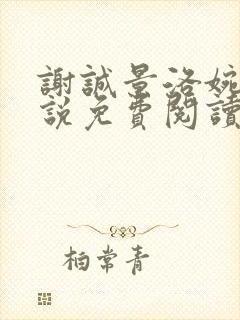 謝誠景洛婉
說免費閱讀
柏常青